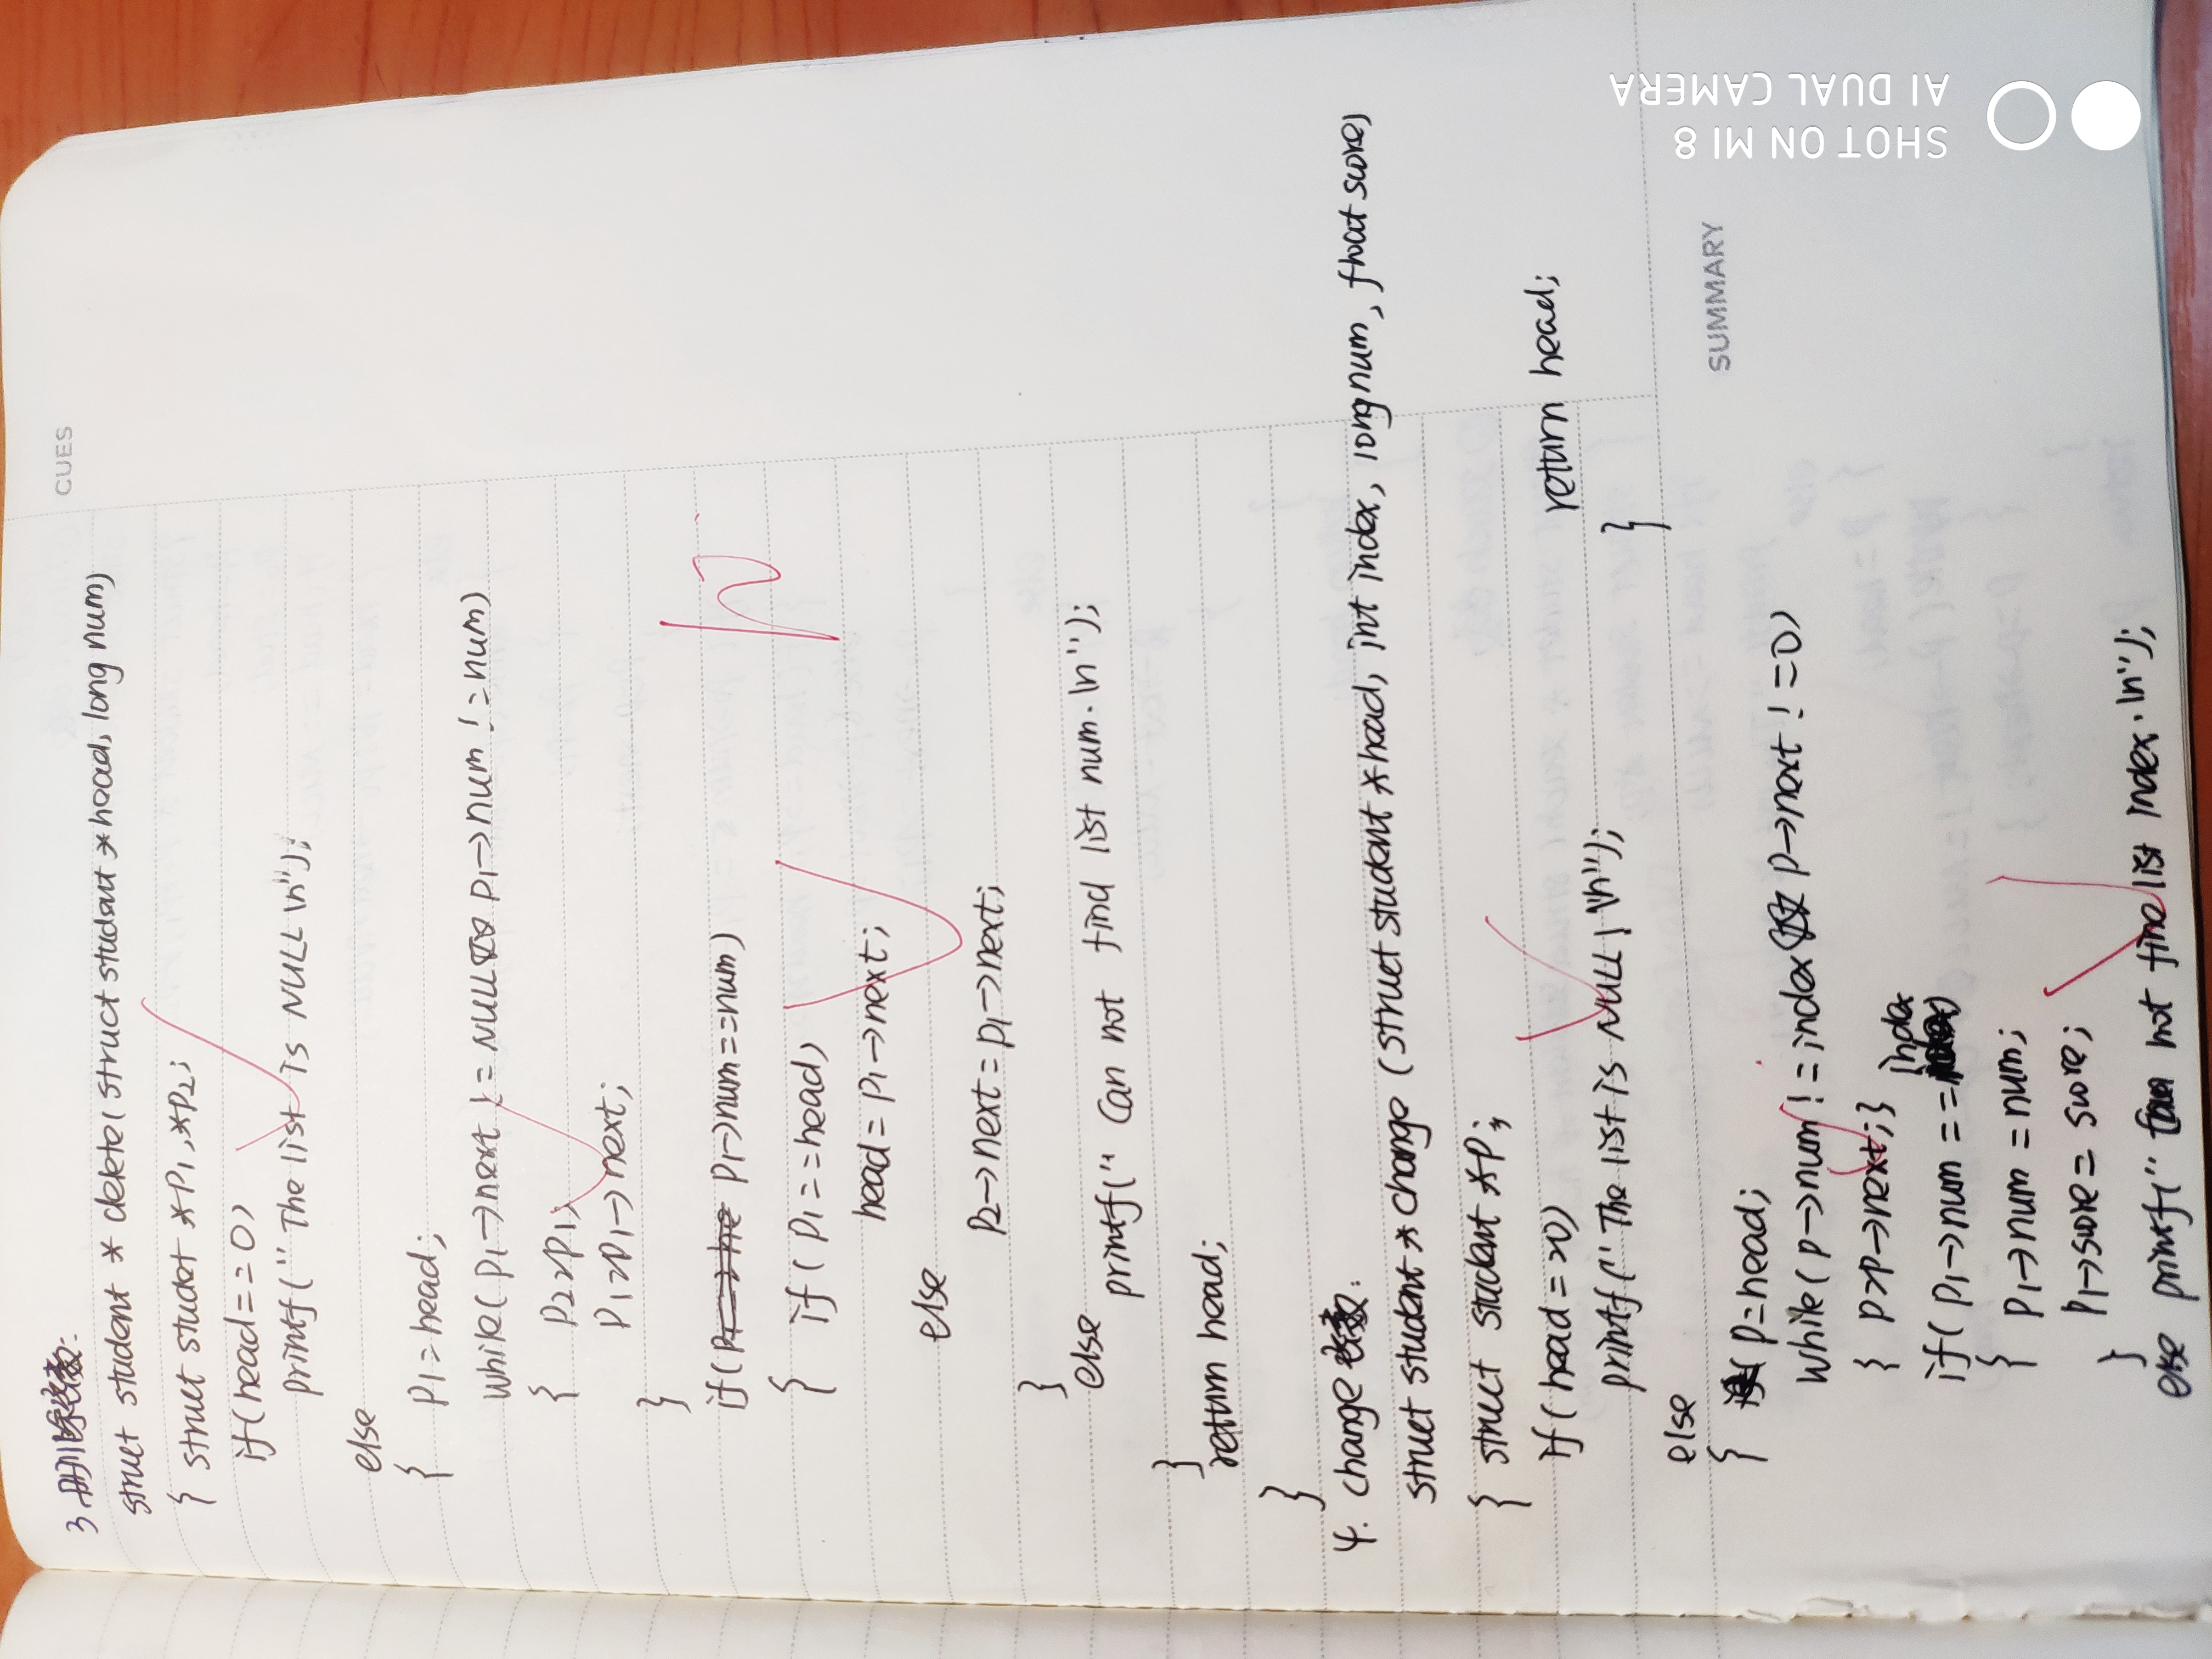 CUES
3.删除:
struct student * delete(struct student *head, long num)
{ struct student *P1,*P2;
if(head==0)
printf("The list is NULL\n");
else
{ P1=head;
while(P1->next != NULL && P1->num != num)
{ P2=P1;
P1=P1->next;
}
if( P1->num==num)
{ if(P1==head)
head=P1->next;
else
P2->next=P1->next;
}
else
printf("Can not find list num.\n");
}
return head;
}
4. change :
struct student *change (struct student *head, int index, long num, float score)
{ struct student *P;
if(head=
printf("The list is NULL\n");
else
{ P=head;
while(P->num!=index && P->next!=0)
{ P=P->next;}
if(P1->num==index)
{ P1->num=num;
P1->score=score;
}
else printf(" not find list index.\n");
}
return head;
SUMMARY
SHOT ON MI 8
AI DUAL CAMERA